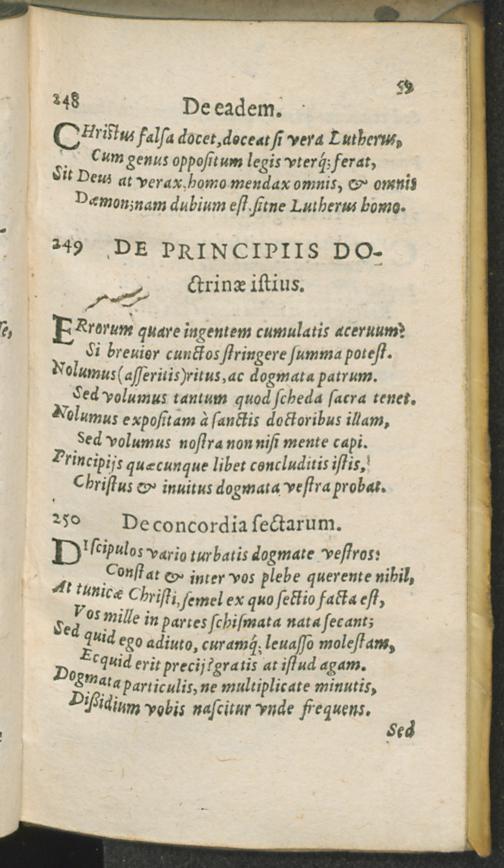 59
248 De eadem.
CHristus falsa docet, doceat si vera Lutherus,
Cum genus oppositum legis vterq; ferat,
Sit Deus at verax, homo mendax omnis, & omnis
Dæmon; nam dubium est, sitne Lutherus homo.
249 DE PRINCIPIIS DO-
ctrinæ istius.
ERrorum quare ingentem cumulatis aceruum?
Si breuior cunctos stringere summa potest.
Nolumus (asseritis) ritus, ac dogmata patrum.
Sed volumus tantum quod scheda sacra tenet.
Nolumus expositam à sanctis doctoribus illam,
Sed volumus nostra non nisi mente capi.
Principijs quæcunque libet concluditis istis,
Christus & inuitus dogmata vestra probat.
250 De concordia sectarum.
DIscipulos vario turbatis dogmate vestros:
Constat & inter vos plebe querente nihil,
At tunicæ Christi, semel ex quo sectio facta est,
Vos mille in partes schismata nata secant;
Sed quid ego adiuto, curamq́; leuasso molestam,
Ecquid erit precij? gratis at istud agam.
Dogmata particulis, ne multiplicate minutis,
Dissidium vobis nascitur vnde frequens.
Sed